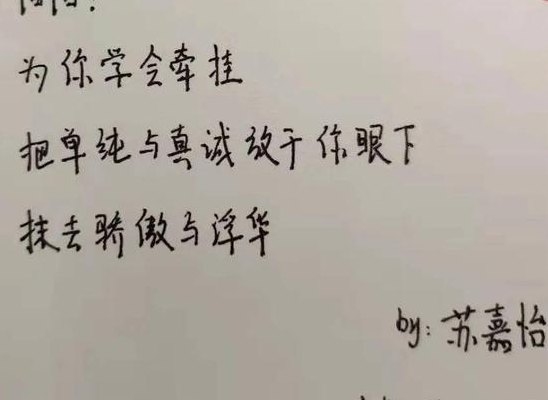 为你学会牵挂
把单纯与真诚放于你眼下
抹去骄傲与浮华
by: 苏嘉怡